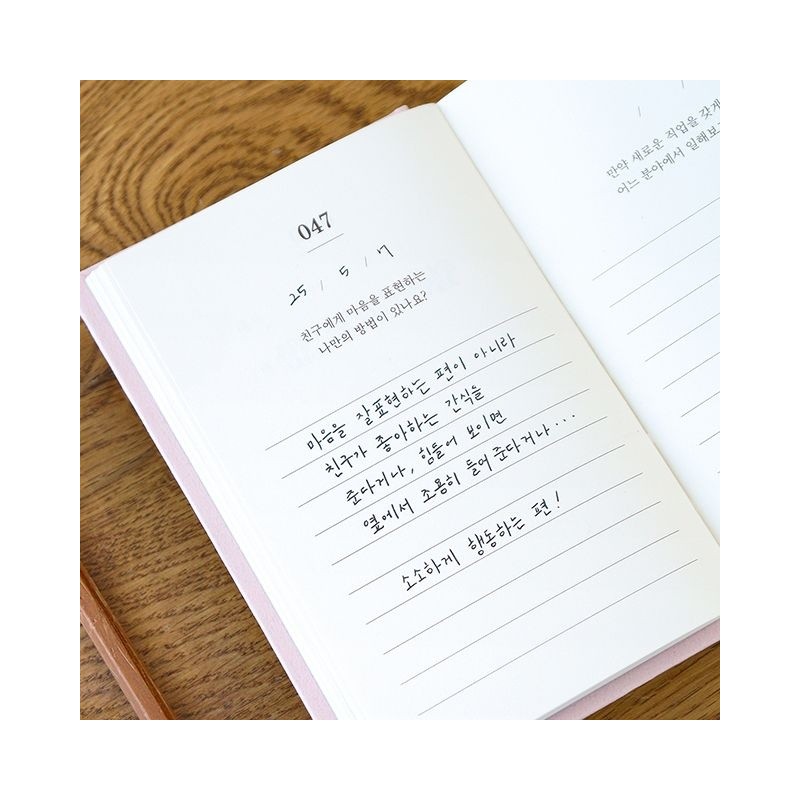 047
25 / 5 / 7
친구에게 마음을 표현하는
나만의 방법이 있나요?
마음을 잘표현하는 편이 아니라
친구가 좋아하는 간식을
준다거나, 힘들어 보이면
옆에서 조용히 들어준다거나...
소소하게 행동하는 편!
/ /
만약 새로운 직업을 갖게
어느 분야에서 일해보고